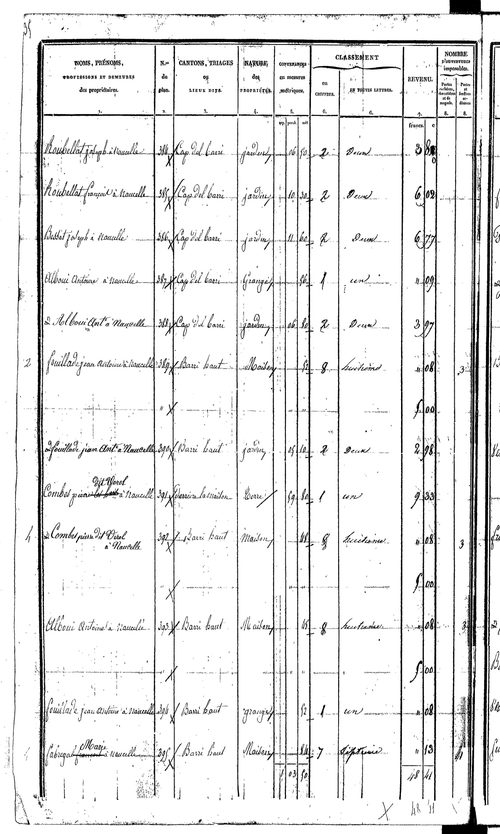 NOMS, PRÉNOMS, PROFESSIONS ET DEMEURES des propriétaires. N.os du plan. CANTONS, TRIAGES ou LIEUX DITS. NATURE des PROPRIÉTÉS. CONTENANCES en mesures métriques. CLASSEMENT en CHIFFRES. EN TOUTES LETTRES. REVENU. NOMBRE D'OUVERTURES imposables.
1. 2. 3. 4. 5. 6. 6. 7. 8. 8.
francs. c
Roubellat joseph à Naucelle 384 Cap del barri jardin 06 50 2 Deux 3
Roubellat françois à Naucelle 385 Cap del barri jardin 10 30 2 Deux 6 02
Basset joseph à Naucelle 386 Cap del barri jardin 11 60 2 Deux 6 77
Alboui Antoine à Naucelle 387 Cap del barri Grange 56 1 un " 09
d Alboui Ant.e à Naucelle 388 Cap del barri jardin 06 80 2 Deux 3 97
2 feuillade jean Antoine à Naucelle 389 Barri haut Maison 52 8 huitième " 08 3
" 5 00
d feuillade jean Ant.e à Naucelle 390 Barri haut jardin 05 10 2 Deux 2 98
dit Virol
Combes pierre à Naucelle 391 Derrière la maison Terre 59 80 1 un 9 33
4 d Combes pierre dit Virol à Naucelle 392 Barri haut Maison 48 8 huitième " 08 3
" 5 00
Alboui Antoine à Naucelle 393 Barri haut Maison 45 8 huitième " 08 3
" 5 00
feuillade jean Antoine à Naucelle 394 Barri haut grange 52 1 un " 08
Marie
fabregat à Naucelle 395 Barri haut Maison 84 7 septième " 13 1
1 03 50 48 41